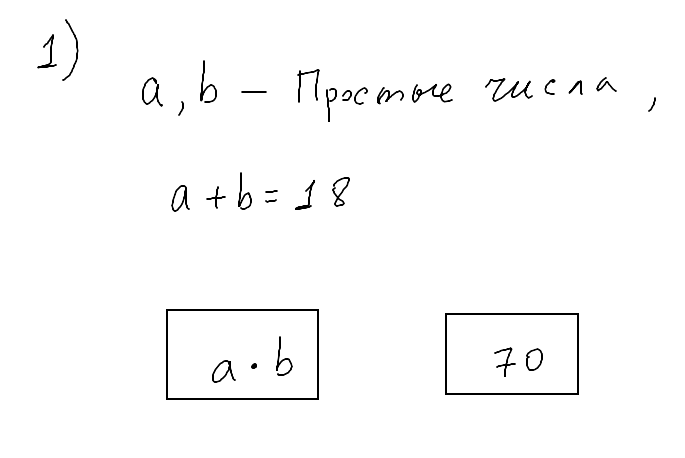 1)
a, b – Простые числа,
a + b = 18
a · b
70